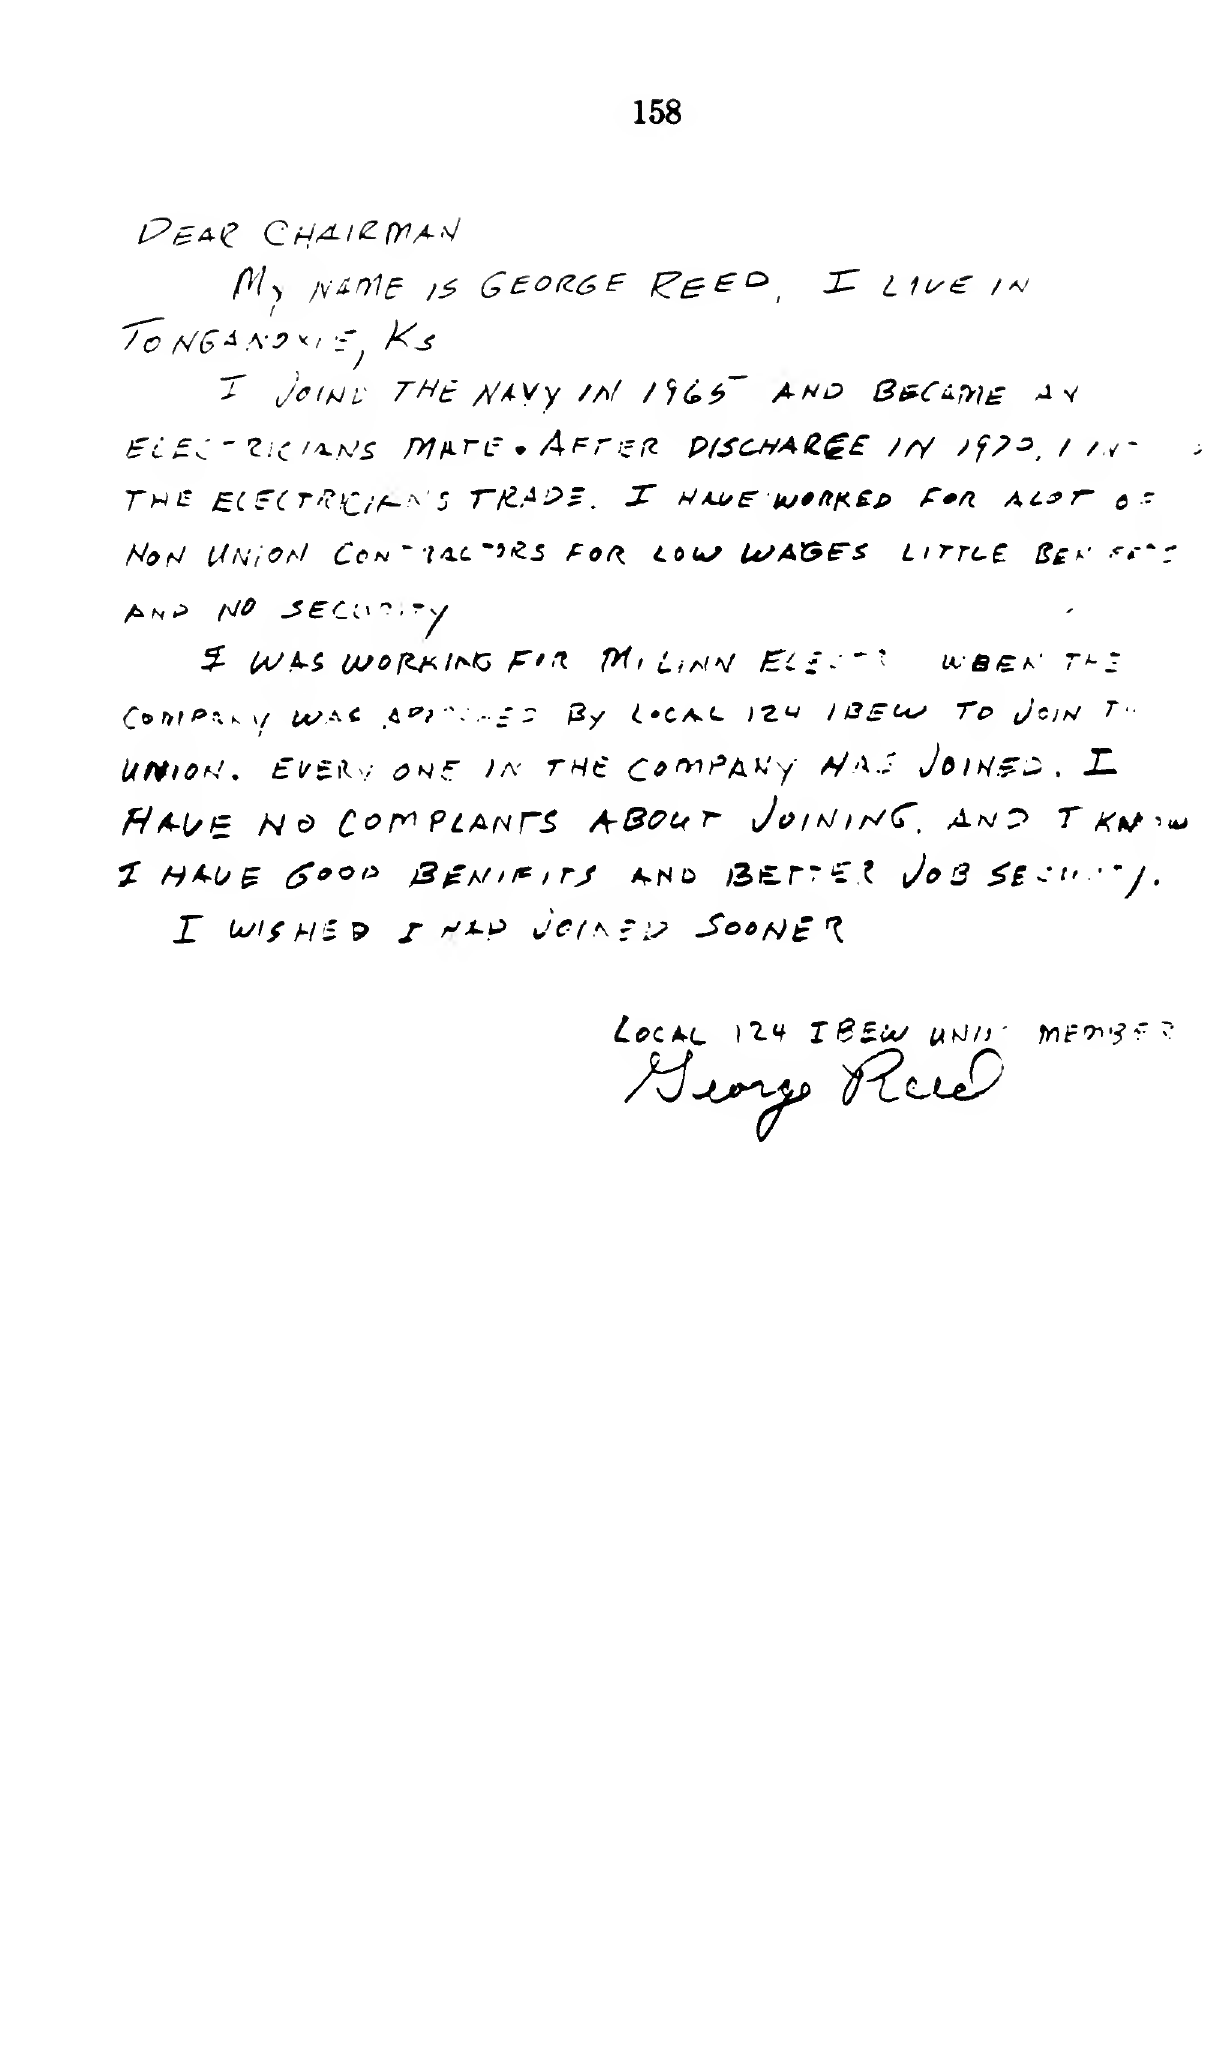 158
DEAR CHAIRMAN
My NAME IS GEORGE REED, I LIVE IN
TONGANOXIE, KS
I JOINE THE NAVY IN 1965 AND BECAME AN
ELECTRICIANS MATE. AFTER DISCHARGE IN 1970, I
THE ELECTRICIANS TRADE. I HAVE WORKED FOR ALOT OF
NON UNION CONTRACTORS FOR LOW WAGES LITTLE
AND NO SECURITY
I WAS WORKING FOR WHEN THE
COMPANY WAS BY LOCAL 124 IBEW TO JOIN
UNION. EVERY ONE IN THE COMPANY HAS JOINED. I
HAVE NO COMPLANTS ABOUT JOINING. AND I KNOW
I HAVE GOOD BENIFITS AND BETTER JOB SECURITY.
I WISHED I HAD JOINED SOONER
LOCAL 124 IBEW MEMBER
George Reed